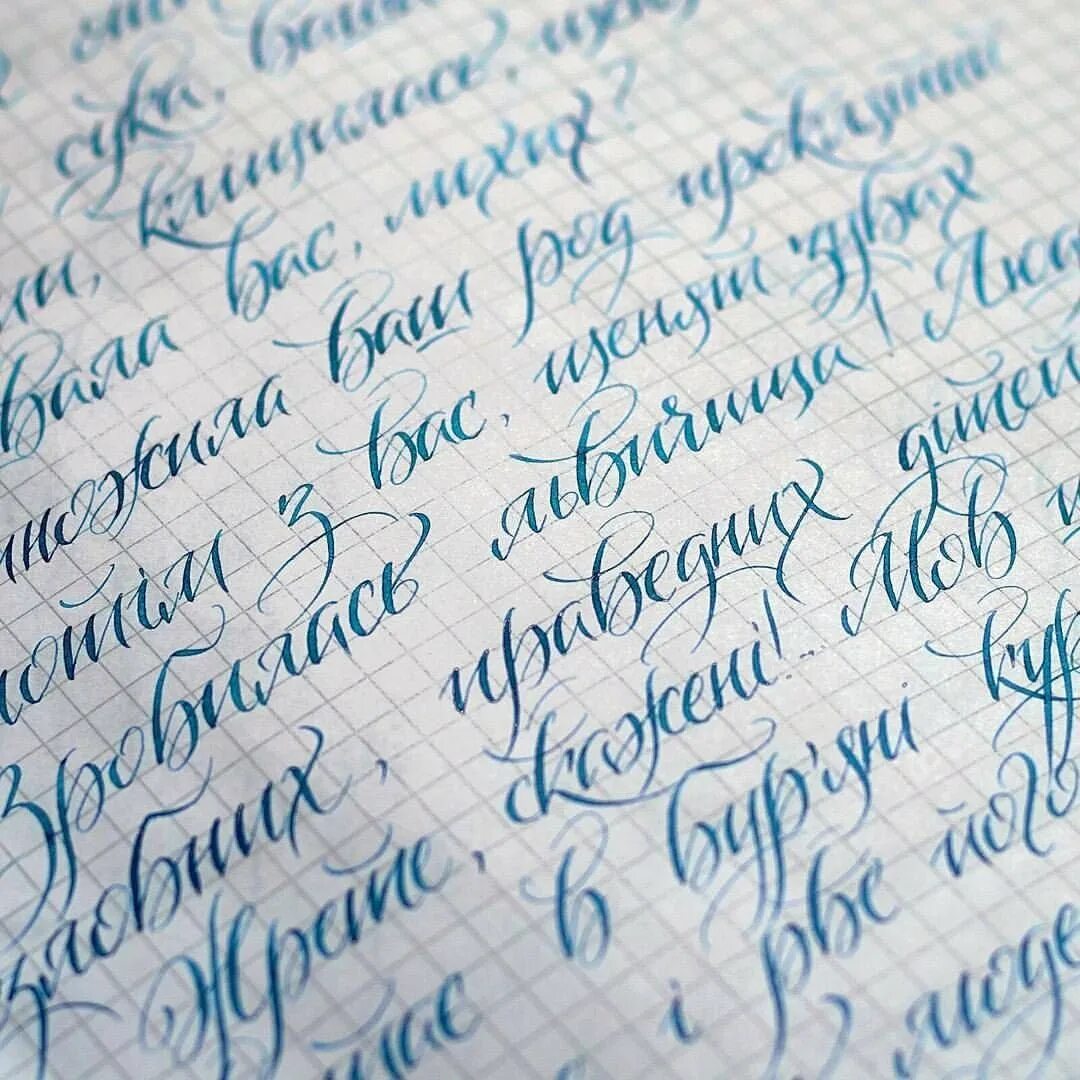 сука,
кліщилась,
вала вас, лихих?
множила ваш род проклятий
потім з вас, щенят зубах
Зробилась львичища! Люд
злобних, праведних дітей
Жрете, скажені!.. Мов
має в бур'яні кур
і рве його
люде